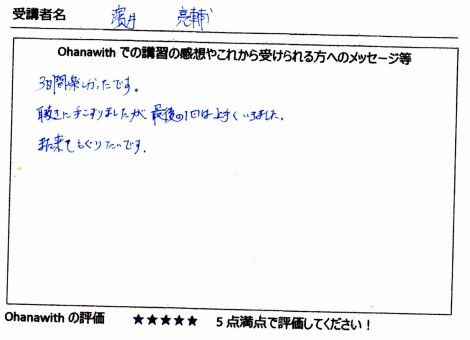 受講者名 濱井 亮輔
Ohanawith での講習の感想やこれから受けられる方へのメッセージ等
3日間楽しかったです。
耳ぬきに手こずりましたが最後の1回は上手くいきました。
また来てもぐりたいです。
Ohanawith の評価 ★★★★★ 5点満点で評価してください！